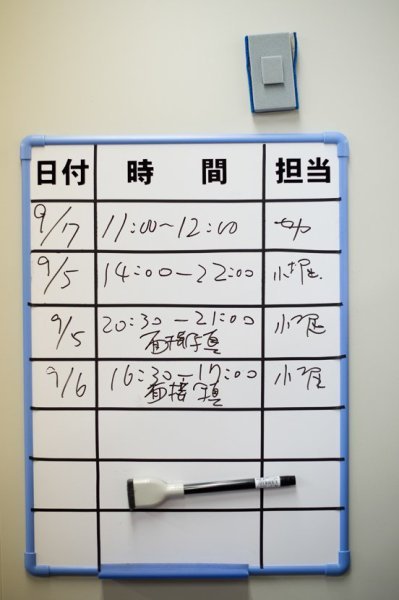 日付 時間 担当
9/7 11:00~12:00
9/5 14:00-22:00 小堀
9/5 20:30-21:00 小堀
面接写真
9/6 16:30-17:00 小堀
面接写真